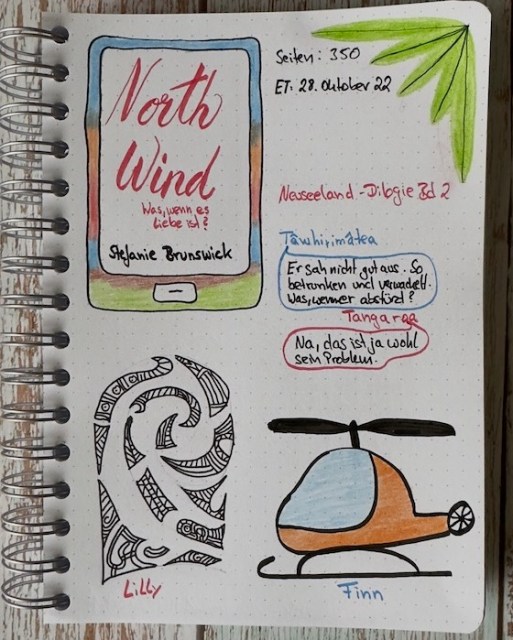 North
Wind
Was, wenn es
Liebe ist?
Stefanie Brunswick
Seiten: 350
ET: 28. Oktober 22
Neuseeland-Dilogie Bd 2
Tāwhirimātea
Er sah nicht gut aus. So
betrunken und verwackelt.
Was, wenn er abstürzt?
Tangaroa
Na, das ist ja wohl
sein Problem.
Lilly
Finn